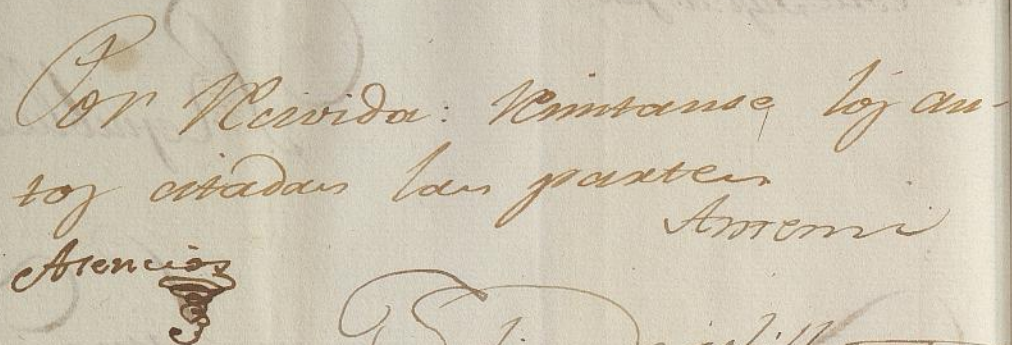 Por Recivida: Remitanse los au-
tos citadas las partes
Ante mi
Asencios